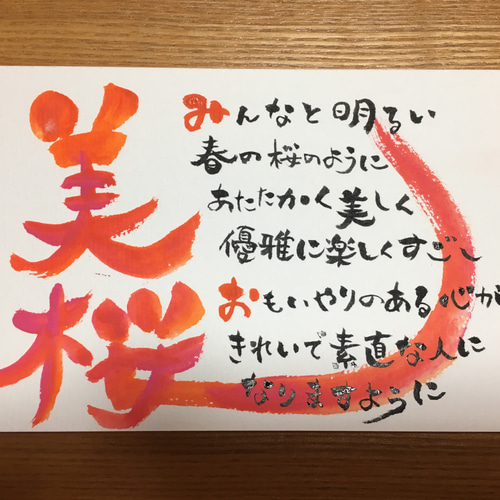 美桜
みんなと明るい
春の桜のように
あたたかく美しく
優雅に楽しくすごし
おもいやりのある心が
きれいで素直な人に
なりますように